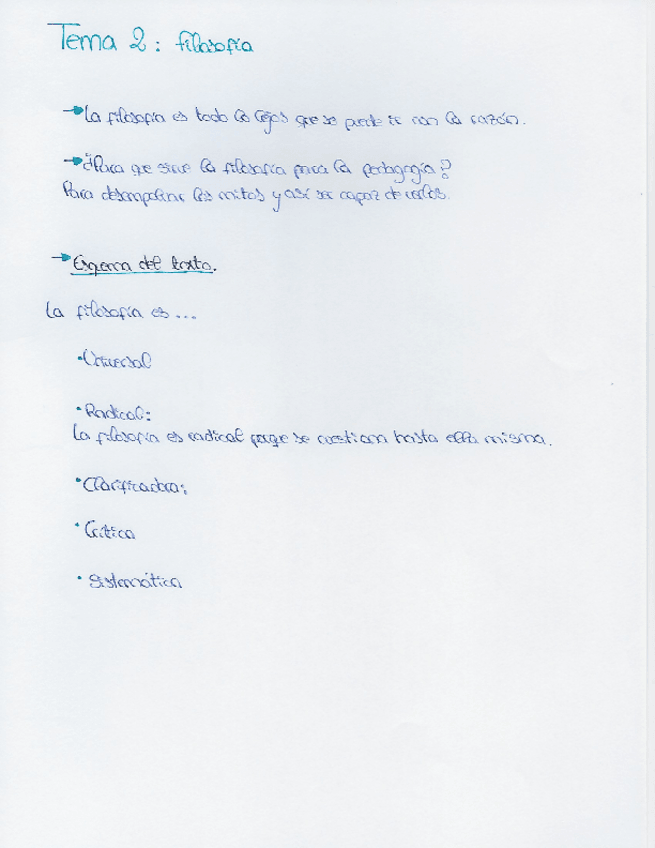 Tema 2: filosofía
→ La filosofía es todo lo lejos que se puede ir con la razón.
→ ¿Para que sirve la filosofía para la pedagogía?
Para desempolvar los mitos y así ser capaz de verlos.
→ Esquema del texto.
La filosofía es...
• Universal
• Radical:
La filosofía es radical porque se cuestiona hasta ella misma.
• Clarificadora:
• Crítica
• Sistemática